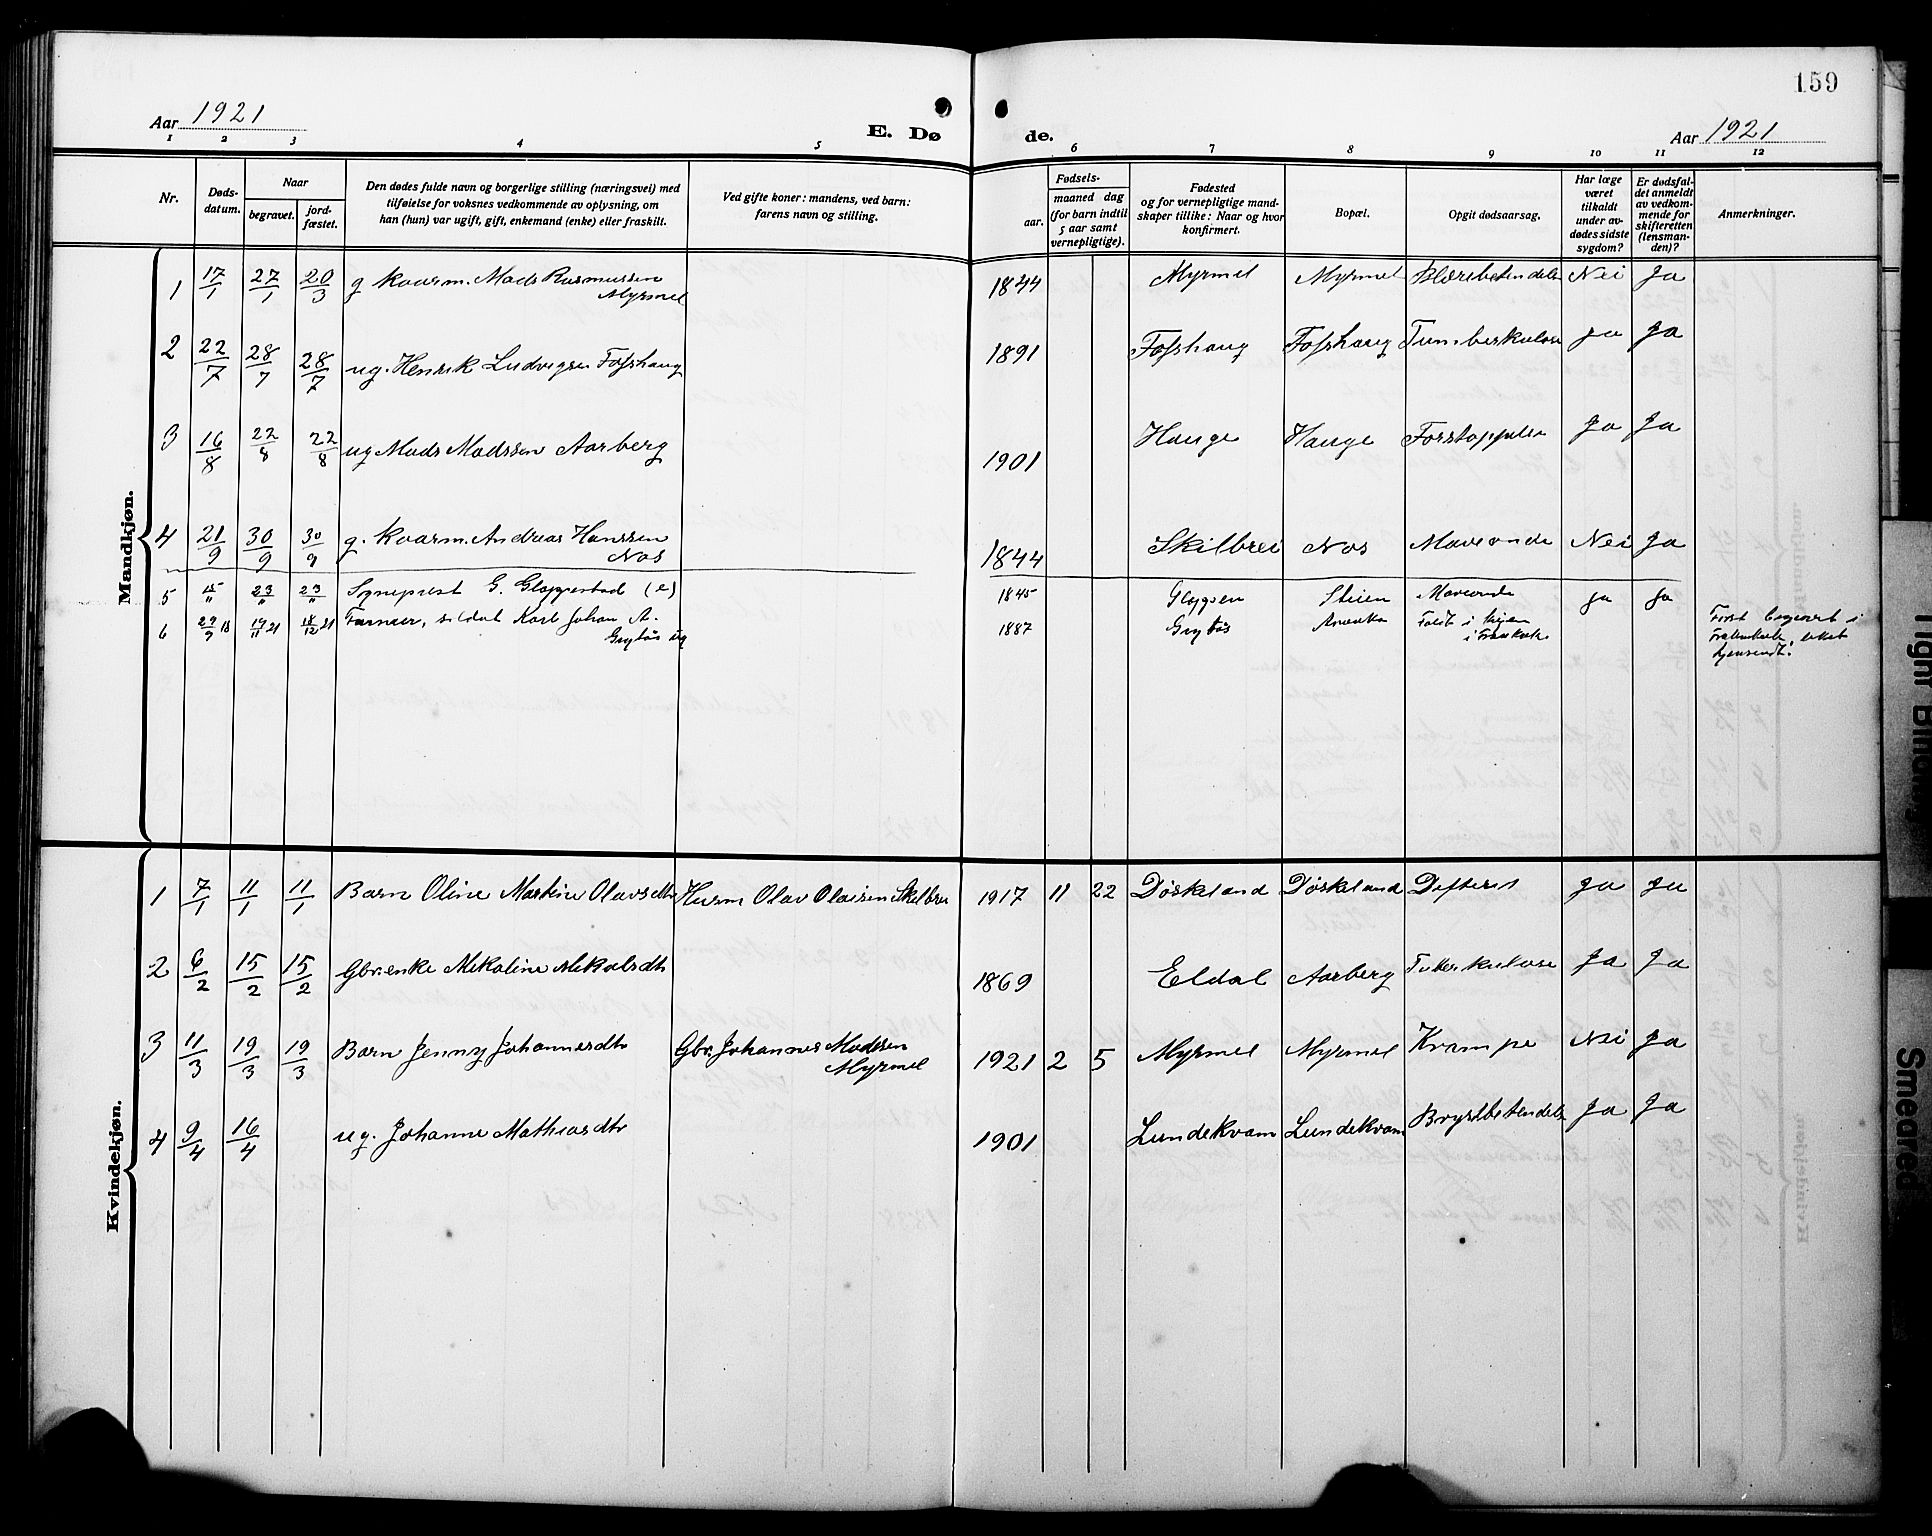 159
Aar 1921
E. Dø de.
Aar 1921
1 2 3 4 5 6 7 8 9 10 11 12
Nr.
Døds-datum.
Naar
begravet.
jord-fæstet.
Den dødes fulde navn og borgerlige stilling (næringsvei) med
tilføielse for voksnes vedkommende av oplysning, om
han (hun) var ugift, gift, enkemand (enke) eller fraskilt.
Ved gifte koner: mandens, ved barn:
farens navn og stilling.
Fødsels-
aar.
maaned dag
(for barn indtil
5 aar samt
vernepligtige).
Fødested
og for vernepligtige mand-
skaper tillike: Naar og hvor
konfirmert.
Bopæl.
Opgit dødsaarsag.
Har læge
været
tilkaldt
under av-
dødes sidste
sygdom?
Er dødsfal-
det anmeldt
av vedkom-
mende for
skifteretten
(lensman-
den)?
Anmerkninger.
Mandkjøn.
1 17/1 27/1 20/3 g kaarm. Mads Rasmussen Myrmel 1844 Myrmel Myrmel Blærebetendelse Nei Ja
2 22/7 28/7 28/7 ug. Henrik Ludvigsen Fosshaug 1891 Fosshaug Fosshaug Tumberkulose Ja Ja
3 16/8 22/8 22/8 ug Mads Madssen Aarberg 1901 Hauge Hauge Forstoppelse Ja Ja
4 21/9 30/9 30/9 g. kaarm. Andreas Hanssen Nos 1844 Skilbrei Nos Maveonde Nei Ja
5 15/" 23/" 23/" Sogneprest G. Gloppestad (e) 1845 Steien Maveonde Ja Ja
6 29/9 18 19/11 21 18/12 21 Farmer, soldat Karl Johan A. ug 1887 Amerika Faldt i krigen i Frankrike
Først begravet i
Frankrike,
hjemsendt.
Kvindekjøn.
1 7/1 11/1 11/1 Barn Oline Martine Olavsdtr Husm Olav Olaisen Skilbrei 1917 11 22 Døskeland Døskeland Difterit Ja Ja
2 6/2 15/2 15/2 Gbr.enke Mikaline Mikalsdtr 1869 Eldal Aarberg Tuberkulose Ja Ja
3 11/3 19/3 19/3 Barn Jenny Johannesdtr Gbr. Johannes Madssen Myrmel 1921 2 5 Myrmel Myrmel Krampe Nei Ja
4 9/4 16/4 ug. Johanne Mathiasdtr 1901 Lundekvam Lundekvam Brystbetendelse Ja Ja
Tight Binding
Smeared